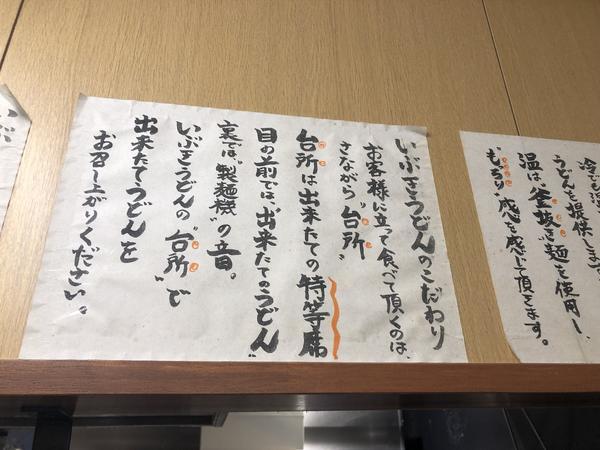 冷でも温
うどんを提供します
温は、"釜抜き"麺を使用し、
"もちり"感を感じて頂きます。
いぶきうどんのこだわり
お客様に立って食べて頂くのは、
さながら"台所"
台所は出来たての特等席
目の前では、"出来たてのうどん"
裏では、"製麺機"の音。
いぶきうどんの"台所"で
出来たてうどんを
お召し上がりください。
いぶ